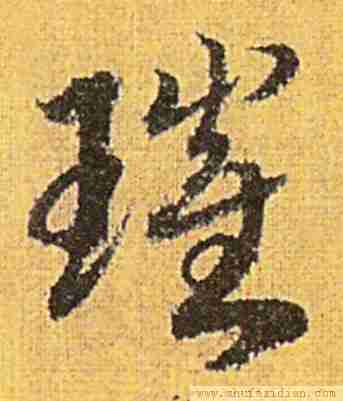 璀
www.shufazidian.com